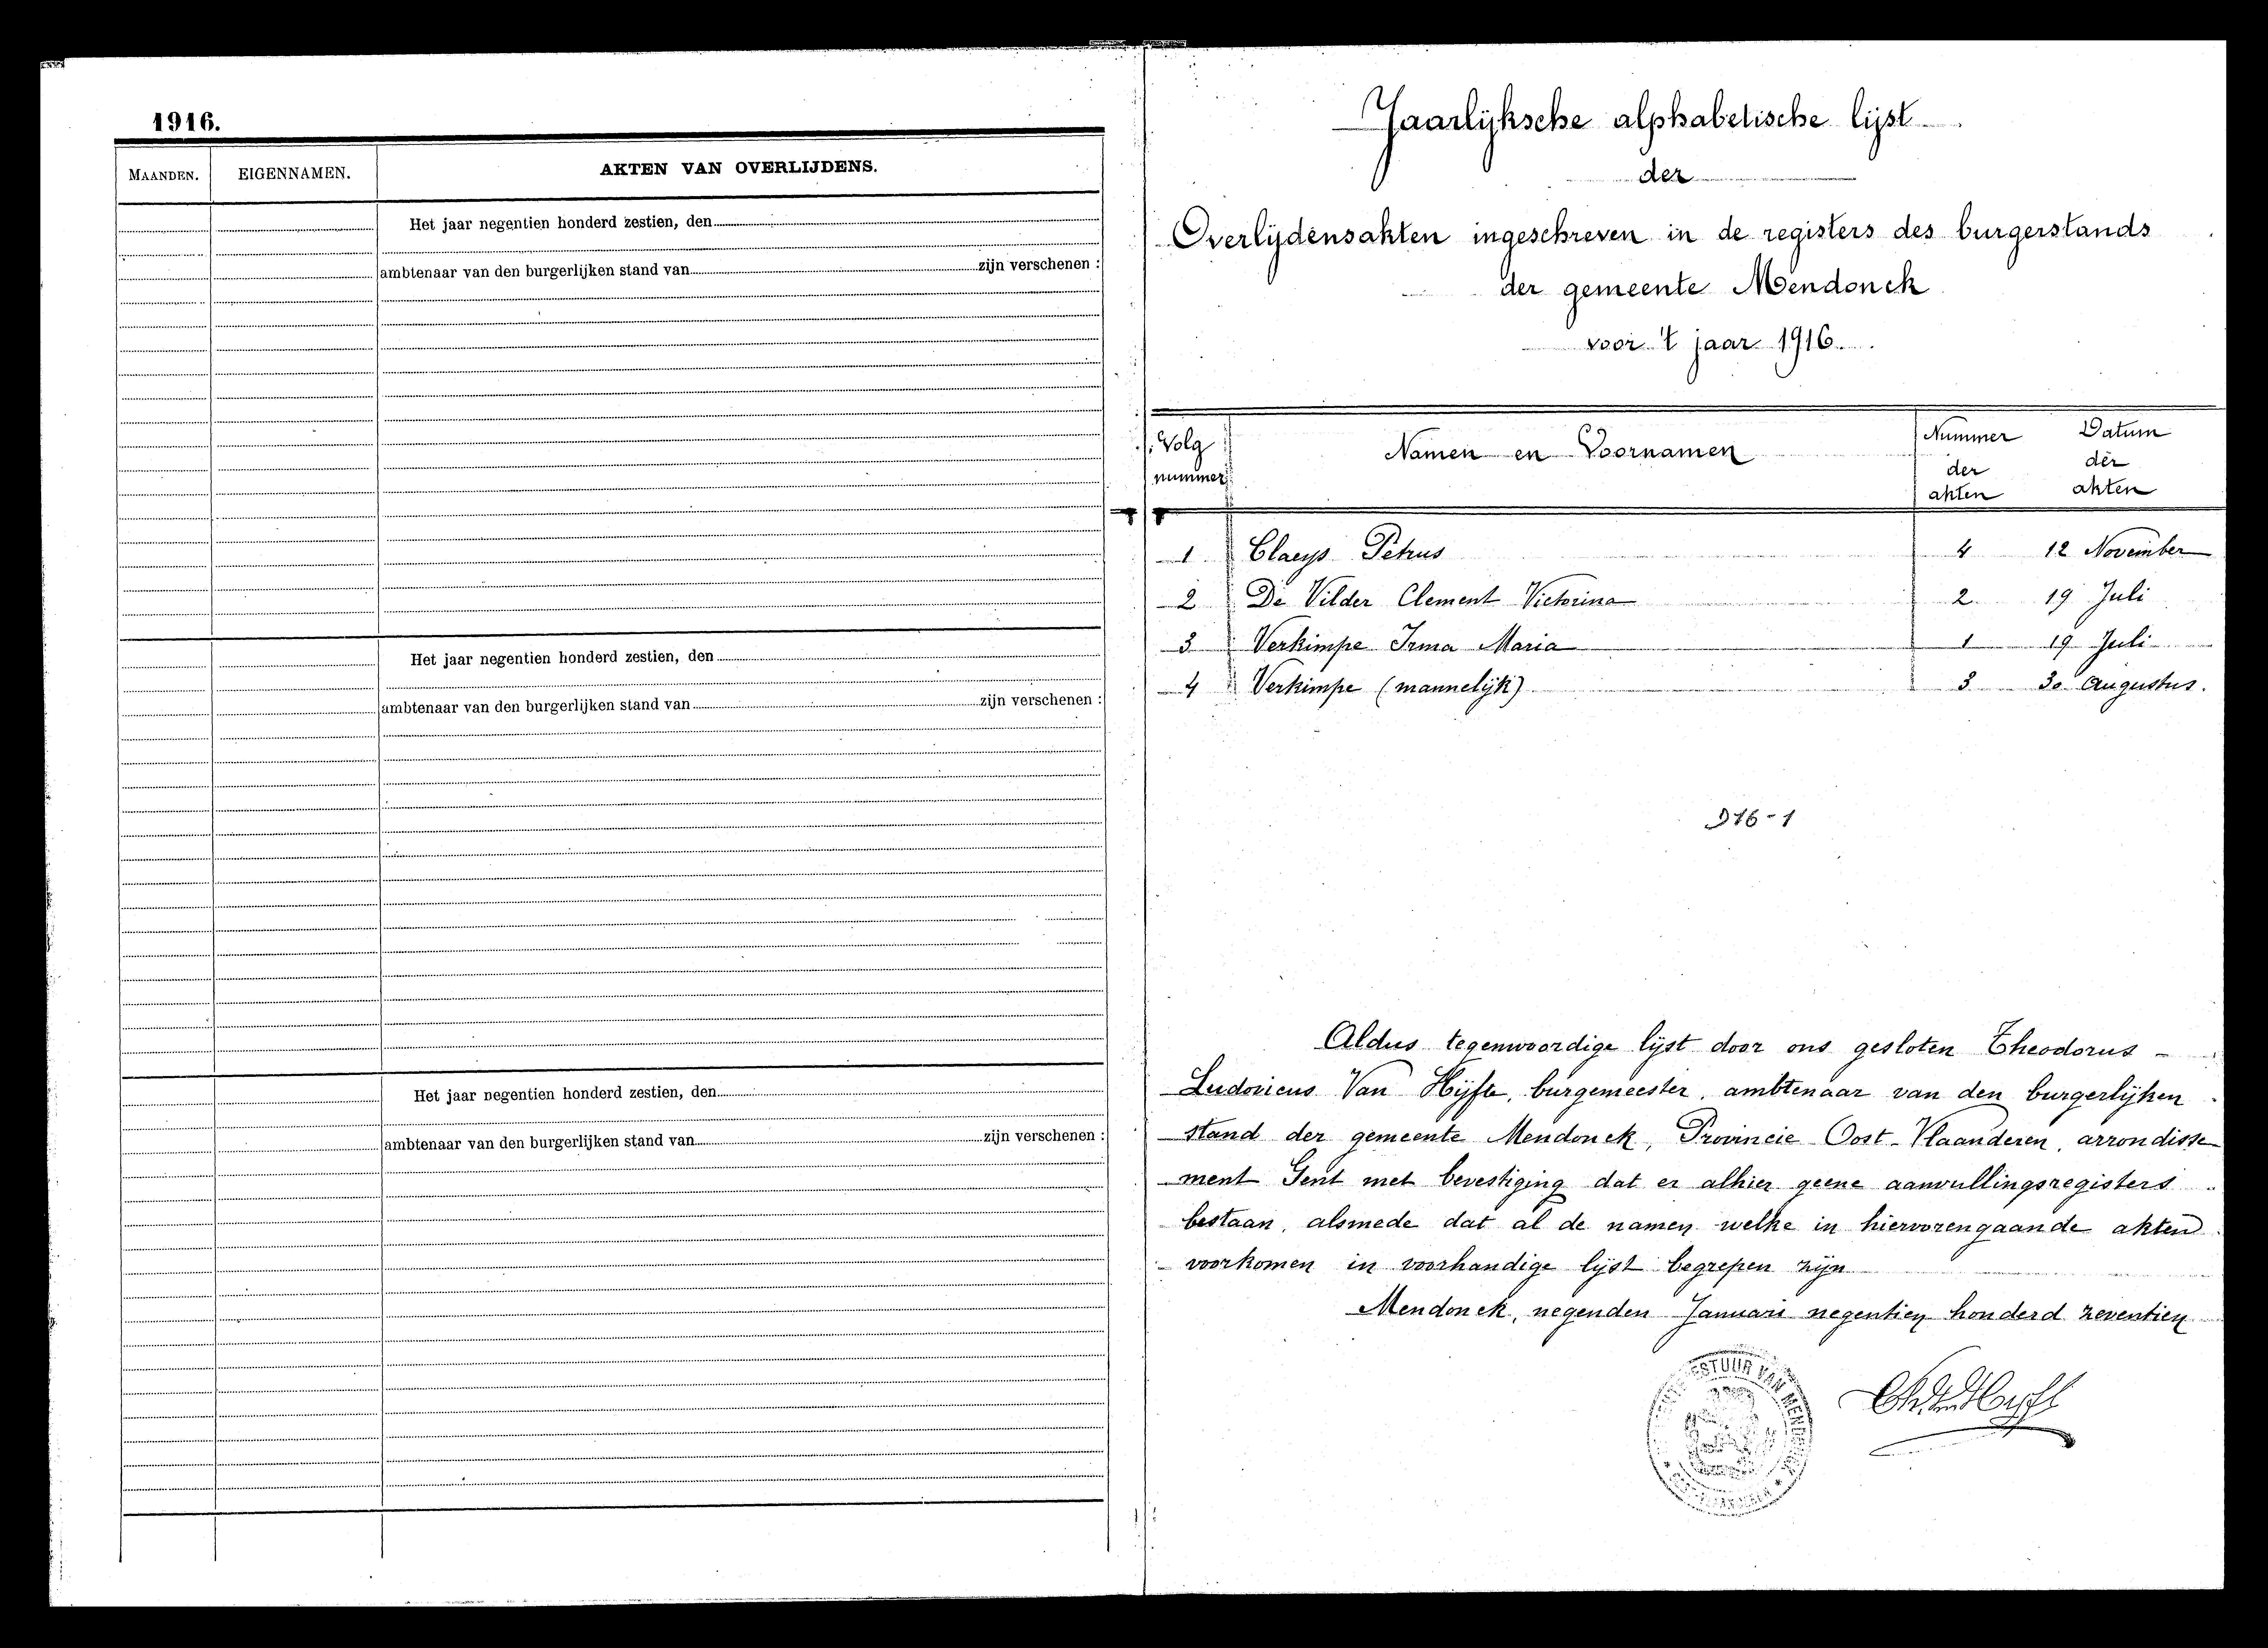 1916.
MAANDEN. EIGENNAMEN. AKTEN VAN OVERLIJDENS.
Het jaar negentien honderd zestien, den
ambtenaar van den burgerlijken stand van zijn verschenen :
Het jaar negentien honderd zestien, den
ambtenaar van den burgerlijken stand van zijn verschenen :
Het jaar negentien honderd zestien, den
ambtenaar van den burgerlijken stand van zijn verschenen :
Jaarlijksche alphabetische lijst
der
Overlijdensakten ingeschreven in de registers des burgerstands
der gemeente Mendonck
voor 't jaar 1916.
Volg nummer Namen en Voornamen Nummer der akten Datum der akten
1 Claeys Petrus 4 12 November
2 De Vilder Clement Victorina 2 19 Juli
3 Verkimpe Irma Maria 1 19 Juli
4 Verkimpe (mannelijk) 3 30 Augustus.
376-1
Aldus tegenwoordige lijst door ons gesloten Theodorus -
Ludovicus Van Hijfte, burgemeester, ambtenaar van den burgerlijken
stand der gemeente Mendonck, Provincie Oost-Vlaanderen, arrondisse
ment Gent met bevestiging dat er alhier geene aanvullingsregisters
bestaan, alsmede dat al de namen welke in hiervorengaande akten
voorkomen in voorhandige lijst begrepen zijn
Mendonck, negenden Januari negentien honderd zeventien